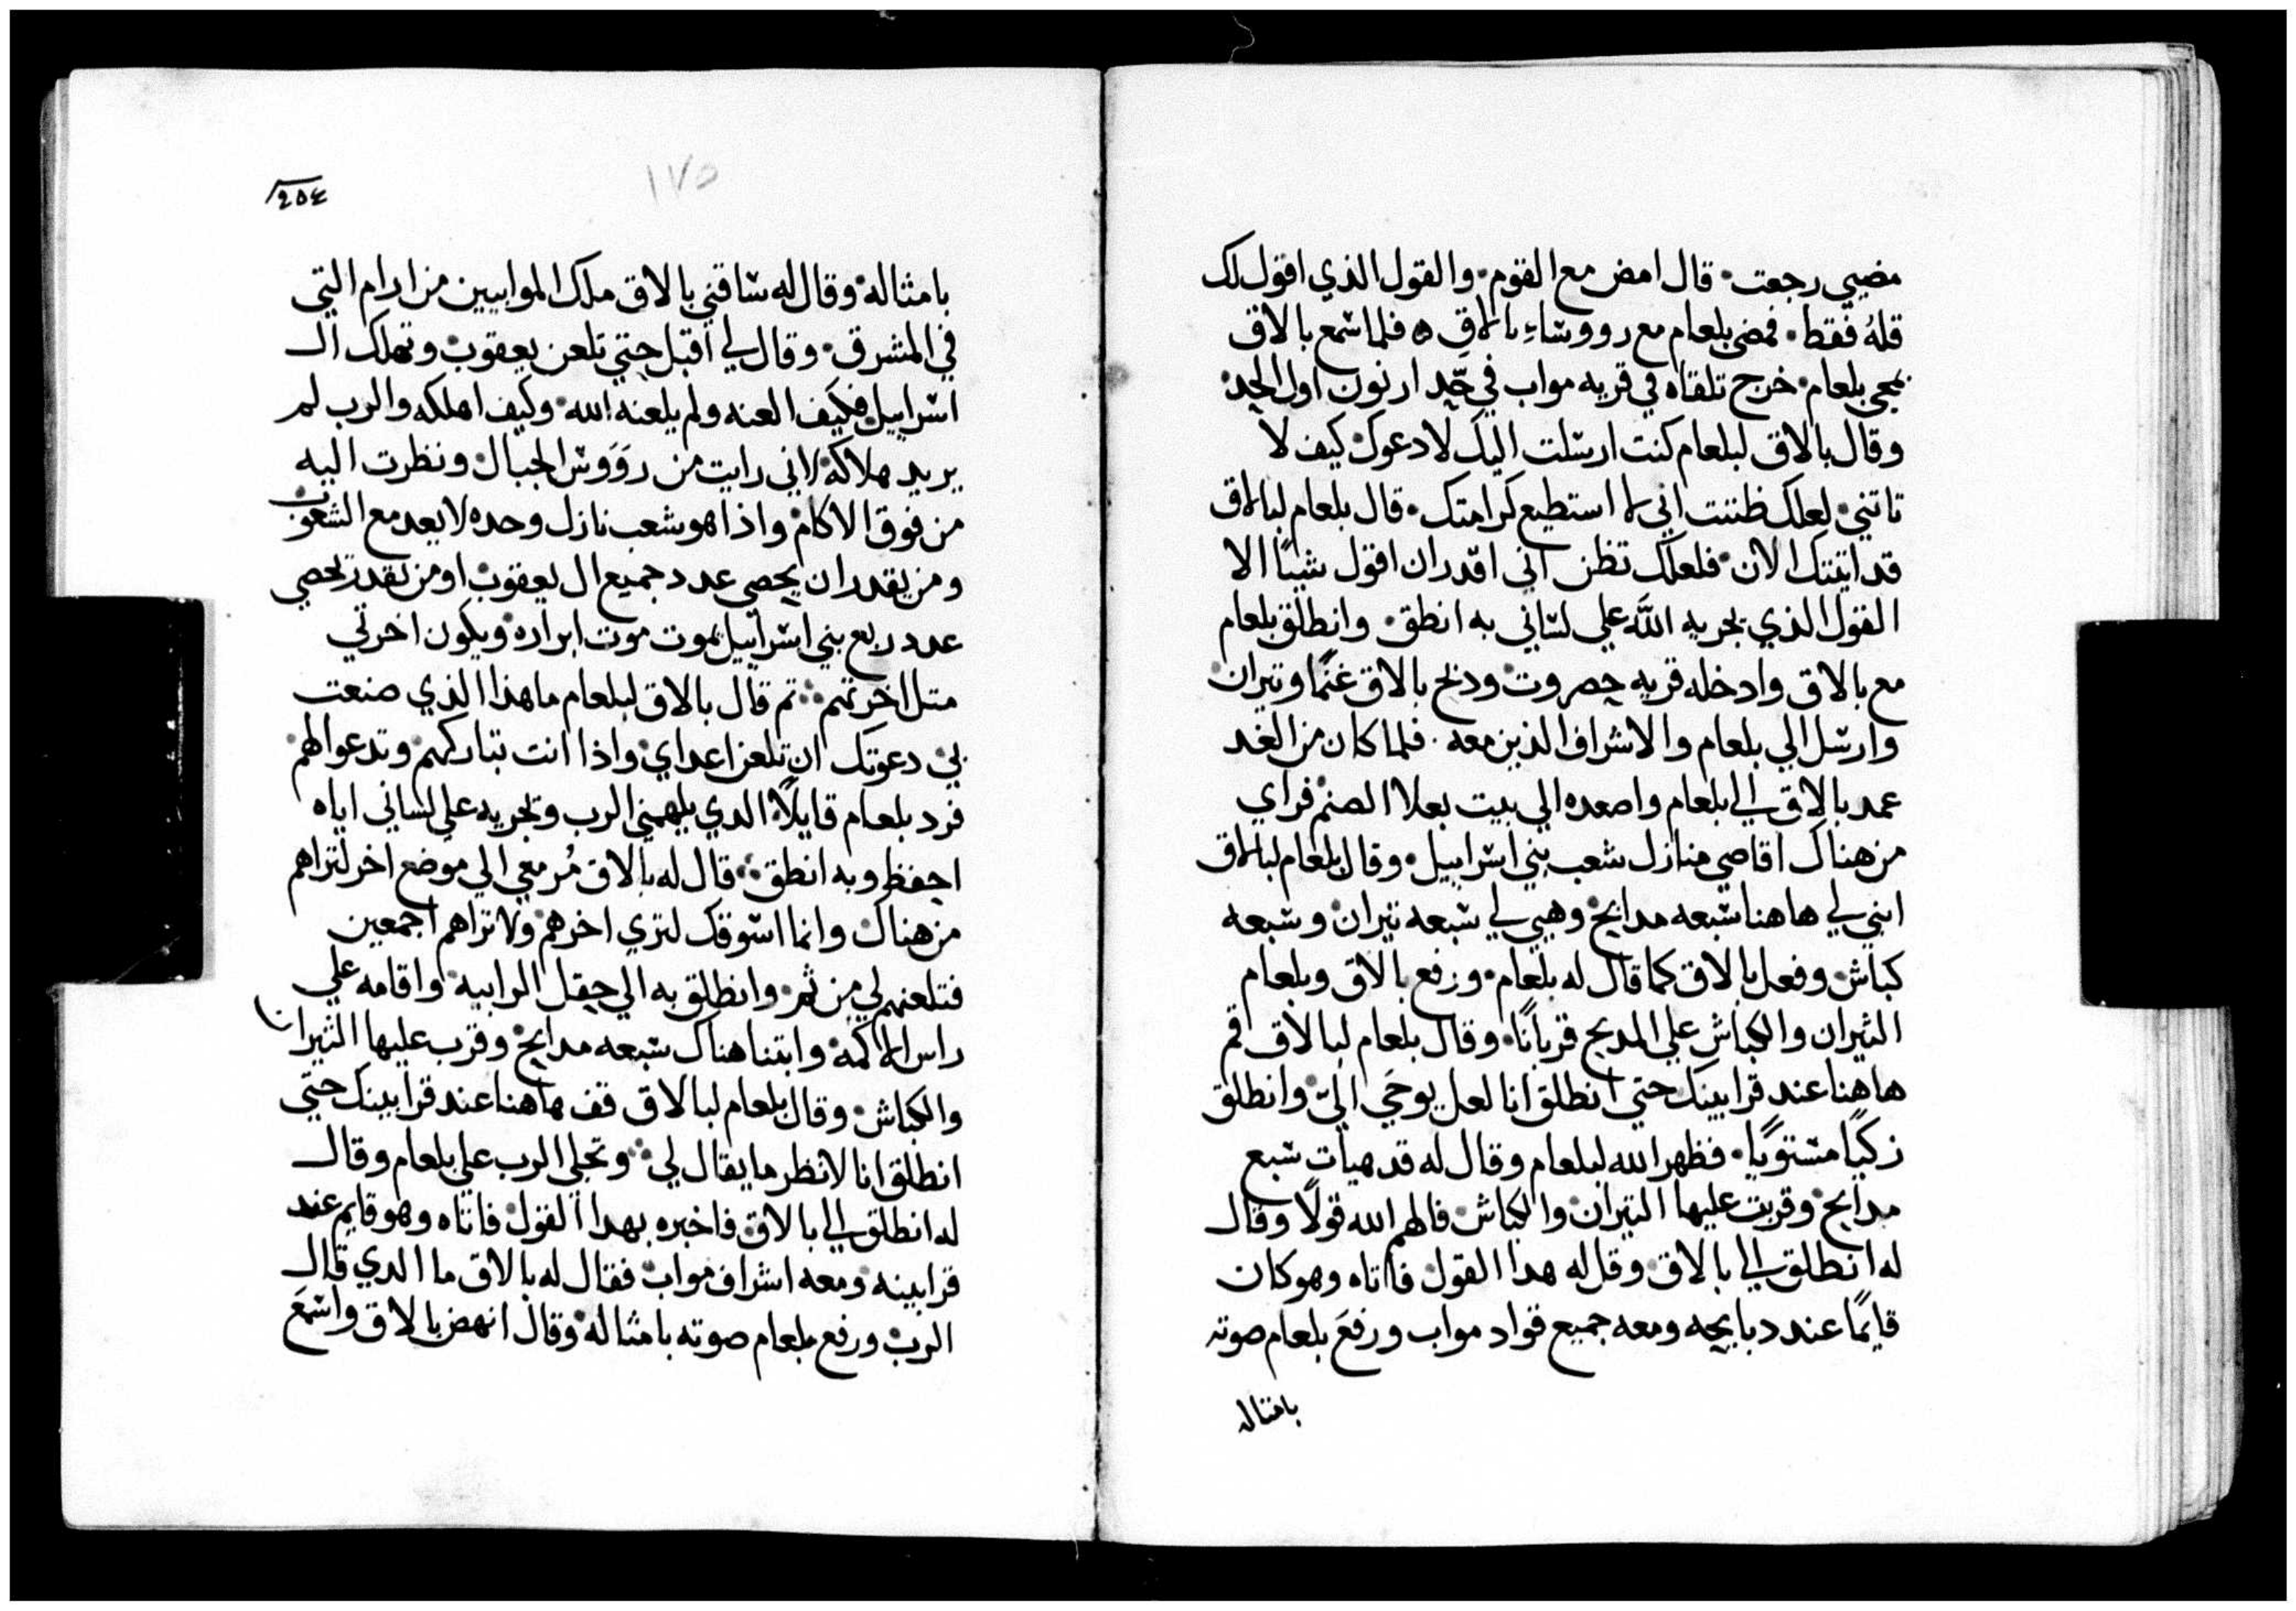 مضيي رجعت. قال امض مع القوم. والقول الذي اقول لك
قلهُ فقط. فمضي بلعام مع رووساءِ بالاق ه فلما سمع بالاق
بمجي بلعام. خرج تلقاه في قريه مواب في حَد ارنون اول الحد.
وقال بالاق لبلعام كنت ارسلت اليك لادعوك كيف لا
تاتني. لعلك ظننت اني لا استطيع كرامتك. قال بلعام لبالاق
قد اتيتك الان. فلعلك تظن اني اقدر ان اقول شيئًا الا
القول الذي يجريه اللَّه علي لساني به انطق. وانطلق بلعام
مع بالاق وادخله قريه حصروت. وذبح بالاق غنمًا وتيران
وارسل الي بلعام والاشراف الذين معه. فلما كان من الغد
عمد بالاق الي بلعام واصعده الي بيت بعلا الصنم. فراي
من هناك اقاصي منازل شعب بني اسراييل. وقال بلعام لبالاق
ابني لي هاهنا سبعه مدابح. وهيي لي سبعه تيران وسبعه
كباش. وفعل بالاق كما قال له بلعام. ورفع بالاق وبلعام
الثيران والكباش علي المدبح قربانًا. وقال بلعام لبالاق قم
هاهنا عند قرابينك حتي انطلق انا لعل يوحَي اليّ. وانطلق
زكيًا مستويًا. فظهر الله لبلعام وقال له قد هيات سبع
مدابح. وقربت عليها التيران والكباش. فالهم الله قولًا وقال
له انطلق الي بالاق. وقل له هدا القول. فاتاه وهو كان
قايمًا عند دبايحه ومعه جميع قواد مواب ورفعَ بلعام صوته
بامثاله
٢٥٤
١٧٥
بامثاله. وقال له ساقني بالاق ملك الموابيين من ارام التي
في المشرق. وقال لي اقبل حتي تلعن يعقوب. وتهلك ال
اسراييل. فكيف العنه ولم يلعنه الله. وكيف اهلكه والرب لم
يريد هلاكه. لاني رايت من رَوَوس الجبال. ونظرت اليه
من فوق الاكام. واذا هو شعب نازل وحده لا يعد مع الشعوب
ومن يقدر ان يحصي عدد جميع ال يعقوب. او من يقدر يحصي
عدد ربع بني اسراييل. يموت موت ابراره. ويكون اخرتي
متل اخرتهم. تم قال بالاق لبلعام ما هذا الذي صنعت
بي. دعوتك ان تلعن اعداي. واذا انت تباركهم. وتدعوا لهم.
فرد بلعام قايلًا. الدي يلهمني الرب ويجريه علي لساني اياه
احفظ وبه انطق. قال له بالاق مُر معي الي موضع اخر لتراهم
من هناك. وانما اسوقك لتري اخرهم. ولا تراهم اجمعين
فتلعنهم لي من ثم. وانطلق به الي حقل الرابيه. واقامه علي
راس الاكمه. وابتنا هناك سبعه مدابح. وقرب عليها الثيران
والكباش. وقال بلعام لبالاق قف هاهنا عند قرابينك حتي
انطلق انا لانظر ما يقال لي. وتجلي الرب علي بلعام وقال
له انطلق الي بالاق. فاخبره بهدا القول. فاتاه وهو قايم عند
قرابينه. ومعه اشراف مواب. فقال له بالاق ما الدي قال
الرب. ورفع بلعام صوته بامثاله. وقال انهض بالاق واسمعَ